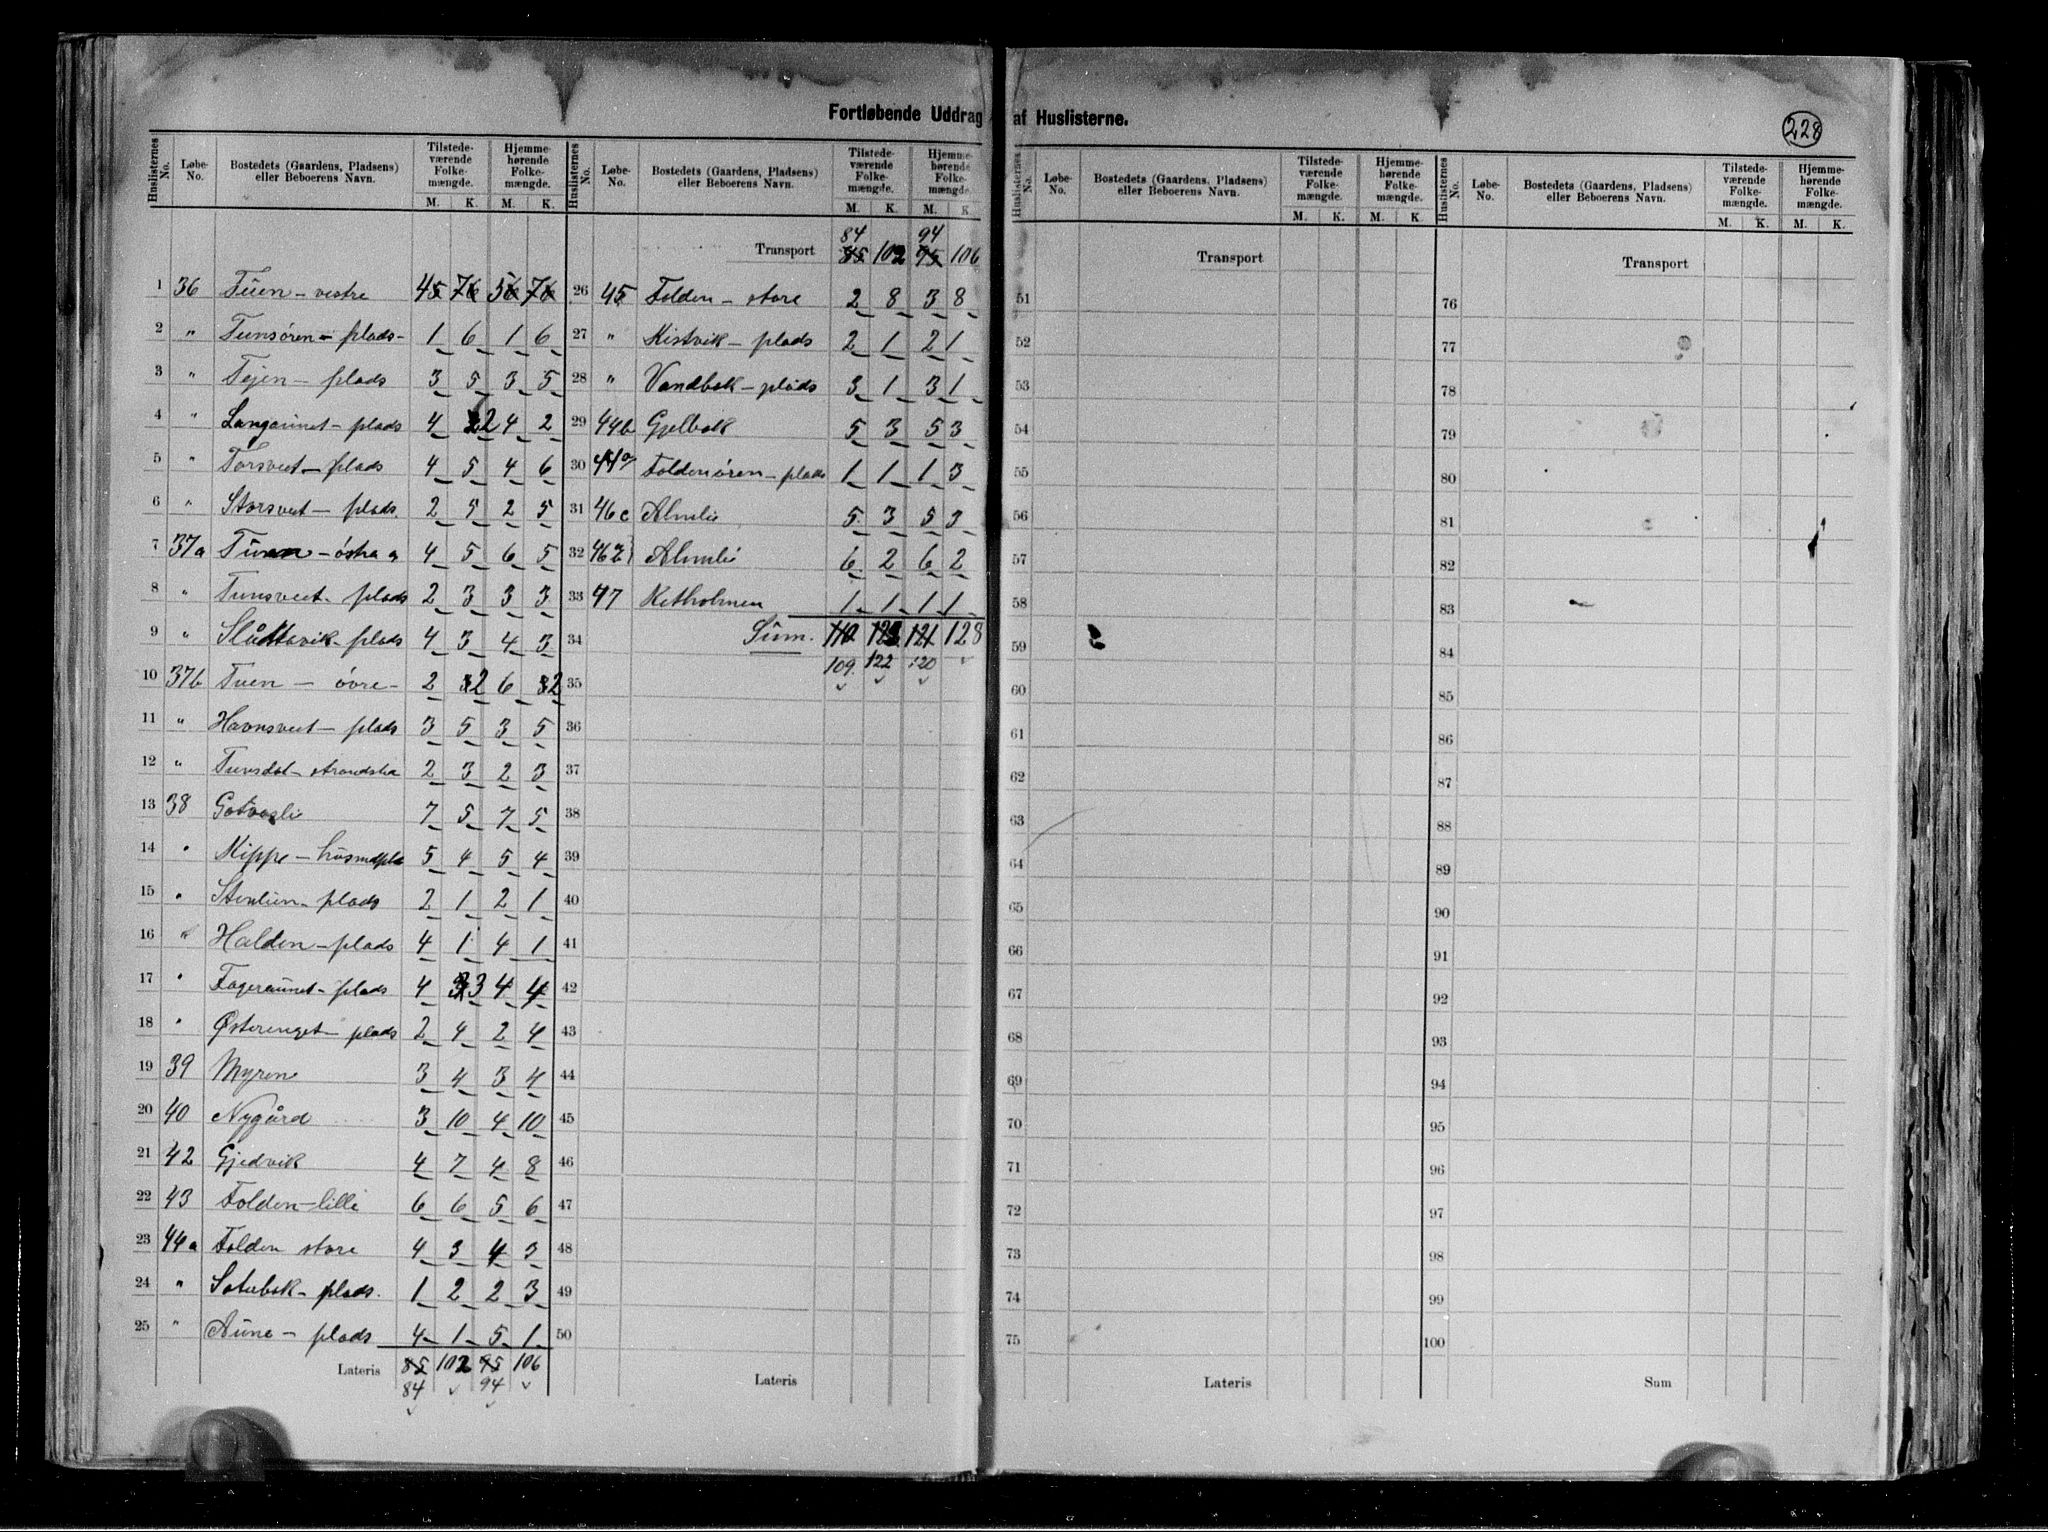 Fortløbende Uddrag af Huslisterne.
228
Huslisternes No. Løbe-No. Bostedets (Gaardens, Pladsens) eller Beboerens Navn. Tilstedeværende Folkemængde. M. K. Hjemmehørende Folkemængde. M. K.
1 36 Tuen – vestre
2 " Tunsøren – plads 1 6 1 6
3 " Tejen – plads 3 5 3 5
4 " Langaunet – plads 4 2 4 2
5 " Torsveet – plads 4 5 4 6
6 " Storsveet – plads 2 5 2 5
7 37a Tuen – østra a 4 5 6 5
8 " Tunsveet – plads 2 3 3 3
9 " Slåttavik – plads 4 3 4 3
10 37b Tuen – øvre – 2 2 6 2
11 " Havnsveet – plads 3 5 3 5
12 " Tunsdal – strandsta 2 3 2 3
13 38 Gotvasli 7 5 7 5
14 " Kippe – husmdpla 5 4 5 4
15 " Stenlien – plads 2 1 2 1
16 " Halden – plads 4 1 4 1
17 " Fageraunet – plads 4 3 4 4
18 " Østerenget – plads 2 4 2 4
19 39 Myren 3 4 3 4
20 40 Nygård 3 10 4 10
21 42 Gjedvik 4 7 4 8
22 43 Folden – lille 6 6 5 6
23 44a Folden store 4 3 4 3
24 " Saterbak – plads. 1 2 2 3
25 " Aune – plads 4 1 5 1
Lateris 85 102 95 106
84 94
Huslisternes No. Løbe-No. Bostedets (Gaardens, Pladsens) eller Beboerens Navn. Tilstedeværende Folkemængde. M. K. Hjemmehørende Folkemængde. M. K.
84 94
Transport 85 102 95 106
26 45 Folden – store 2 8 3 8
27 " Kistvik – plads 2 1 2 1
28 " Vandbak – plads 3 1 3 1
29 44b Gjelbak 5 3 5 3
30 44a Foldenøren – plads 1 1 1 3
31 46c Almlie 5 3 5 3
32 46 Almlie 6 2 6 2
33 47 Ketholmen 1 1 1 1
34 Sum. 110 123 121 128
109. 122 120
35
36
37
38
39
40
41
42
43
44
45
46
47
48
49
50
Lateris
Huslisternes No. Løbe-No. Bostedets (Gaardens, Pladsens) eller Beboerens Navn. Tilstedeværende Folkemængde. M. K. Hjemmehørende Folkemængde. M. K.
Transport
51
52
53
54
55
56
57
58
59
60
61
62
63
64
65
66
67
68
69
70
71
72
73
74
75
Lateris
Huslisternes No. Løbe-No. Bostedets (Gaardens, Pladsens) eller Beboerens Navn. Tilstedeværende Folkemængde. M. K. Hjemmehørende Folkemængde. M. K.
Transport
76
77
78
79
80
81
82
83
84
85
86
87
88
89
90
91
92
93
94
95
96
97
98
99
100
Sum